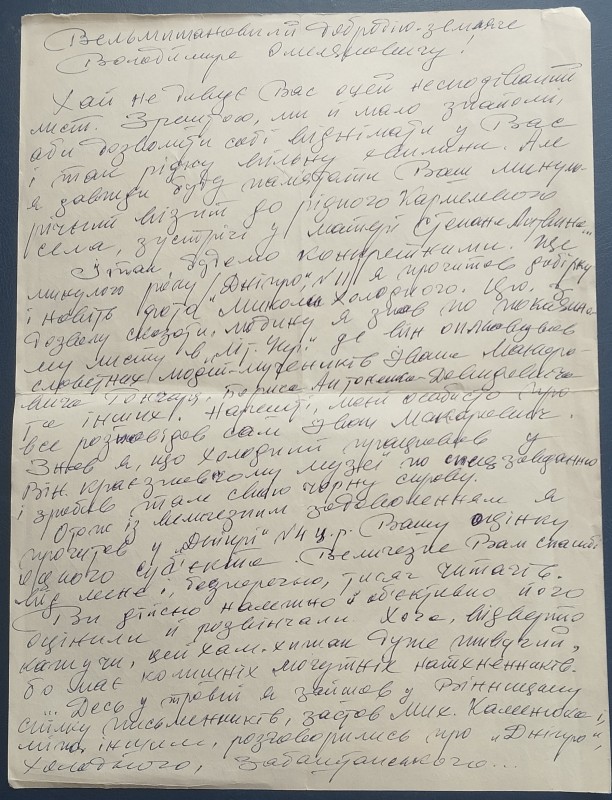 Вельмишановний Добродію-земляче
Володимире Омеляновичу!
Хай не дивує Вас оцей несподіваний
лист. Зрештою, ми й мало знайомі,
аби дозволити собі віднімати у Вас
і так рідку вільну хвилину. Але
я завжди буду пам'ятати Ваш минуло-
річний візит до рідного Кармелевого
села, зустрічі у матері Степана Литвина...
Отак будемо конкретними. Ще
минулого року "Дніпро", N 11 я прочитав добірку
і навіть фото Миколи Холодного. Цю, б
дозволу сказати, людину я знав по покаянно
му листу в "Літ. Укр." де він опльовував
словетних людей-мучеників Івана Макаро-
вича Гончара, Бориса Антоненка-Давидовича
та інших. Нарешті, мені особисто про
все розповідав сам Іван Макарович.
Знав я, що Холодний працював у
Він. краєзнавчому музеї по спецзавданню
і зробив там свою чорну справу.
Отож із величезним задоволенням я
прочитав у "Дніпрі" N 4 ц.р. Вашу оцінку
цього суб'єкта. Величезне Вам спасибі
від мене і, безперечно, тисяч читачів.
Ви дійсно належно й об'єктивно його
оцінили й розвінчали. Хоча, відверто
кажучи, цей хам-хижак дуже живучий,
бо має колишніх могутніх натхненників.
... Десь у травні я зайшов у Вінницьку
спілку письменників, застав Мих. Каменюка і,
між іншим, розговорились про "Дніпро",
Холодного, Забаштанського...